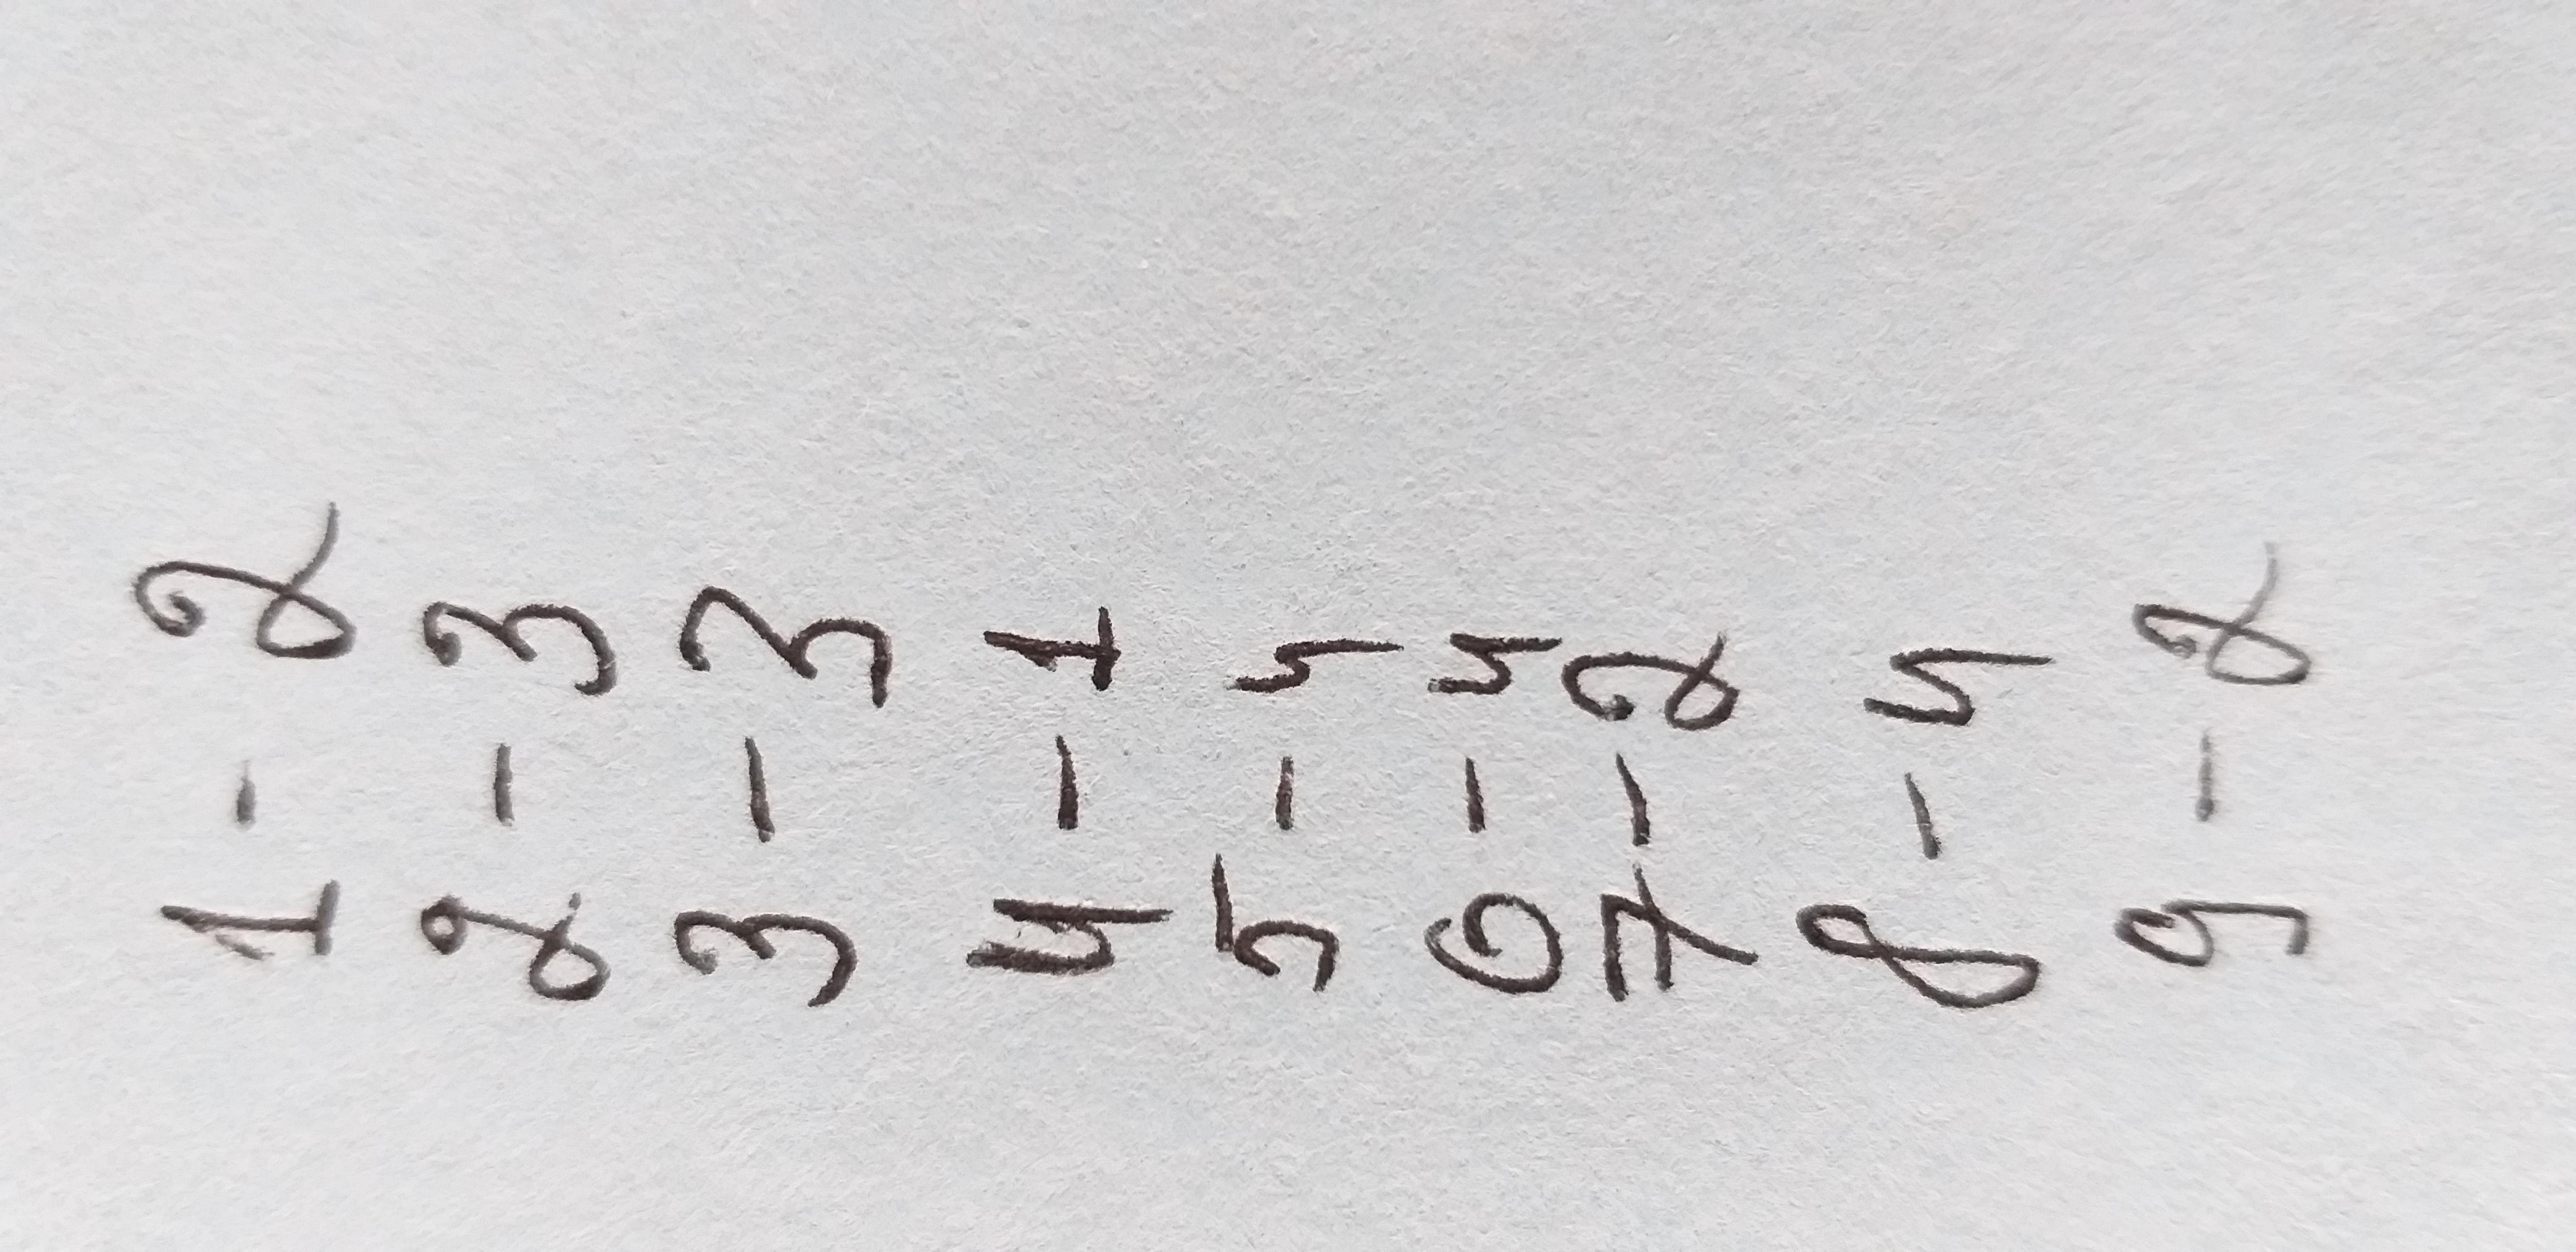 1 - 2
2 - 3
3 - 3
4 - 1
5 - 4
6 - 4
7 - 2
8 - 4
9 - 2